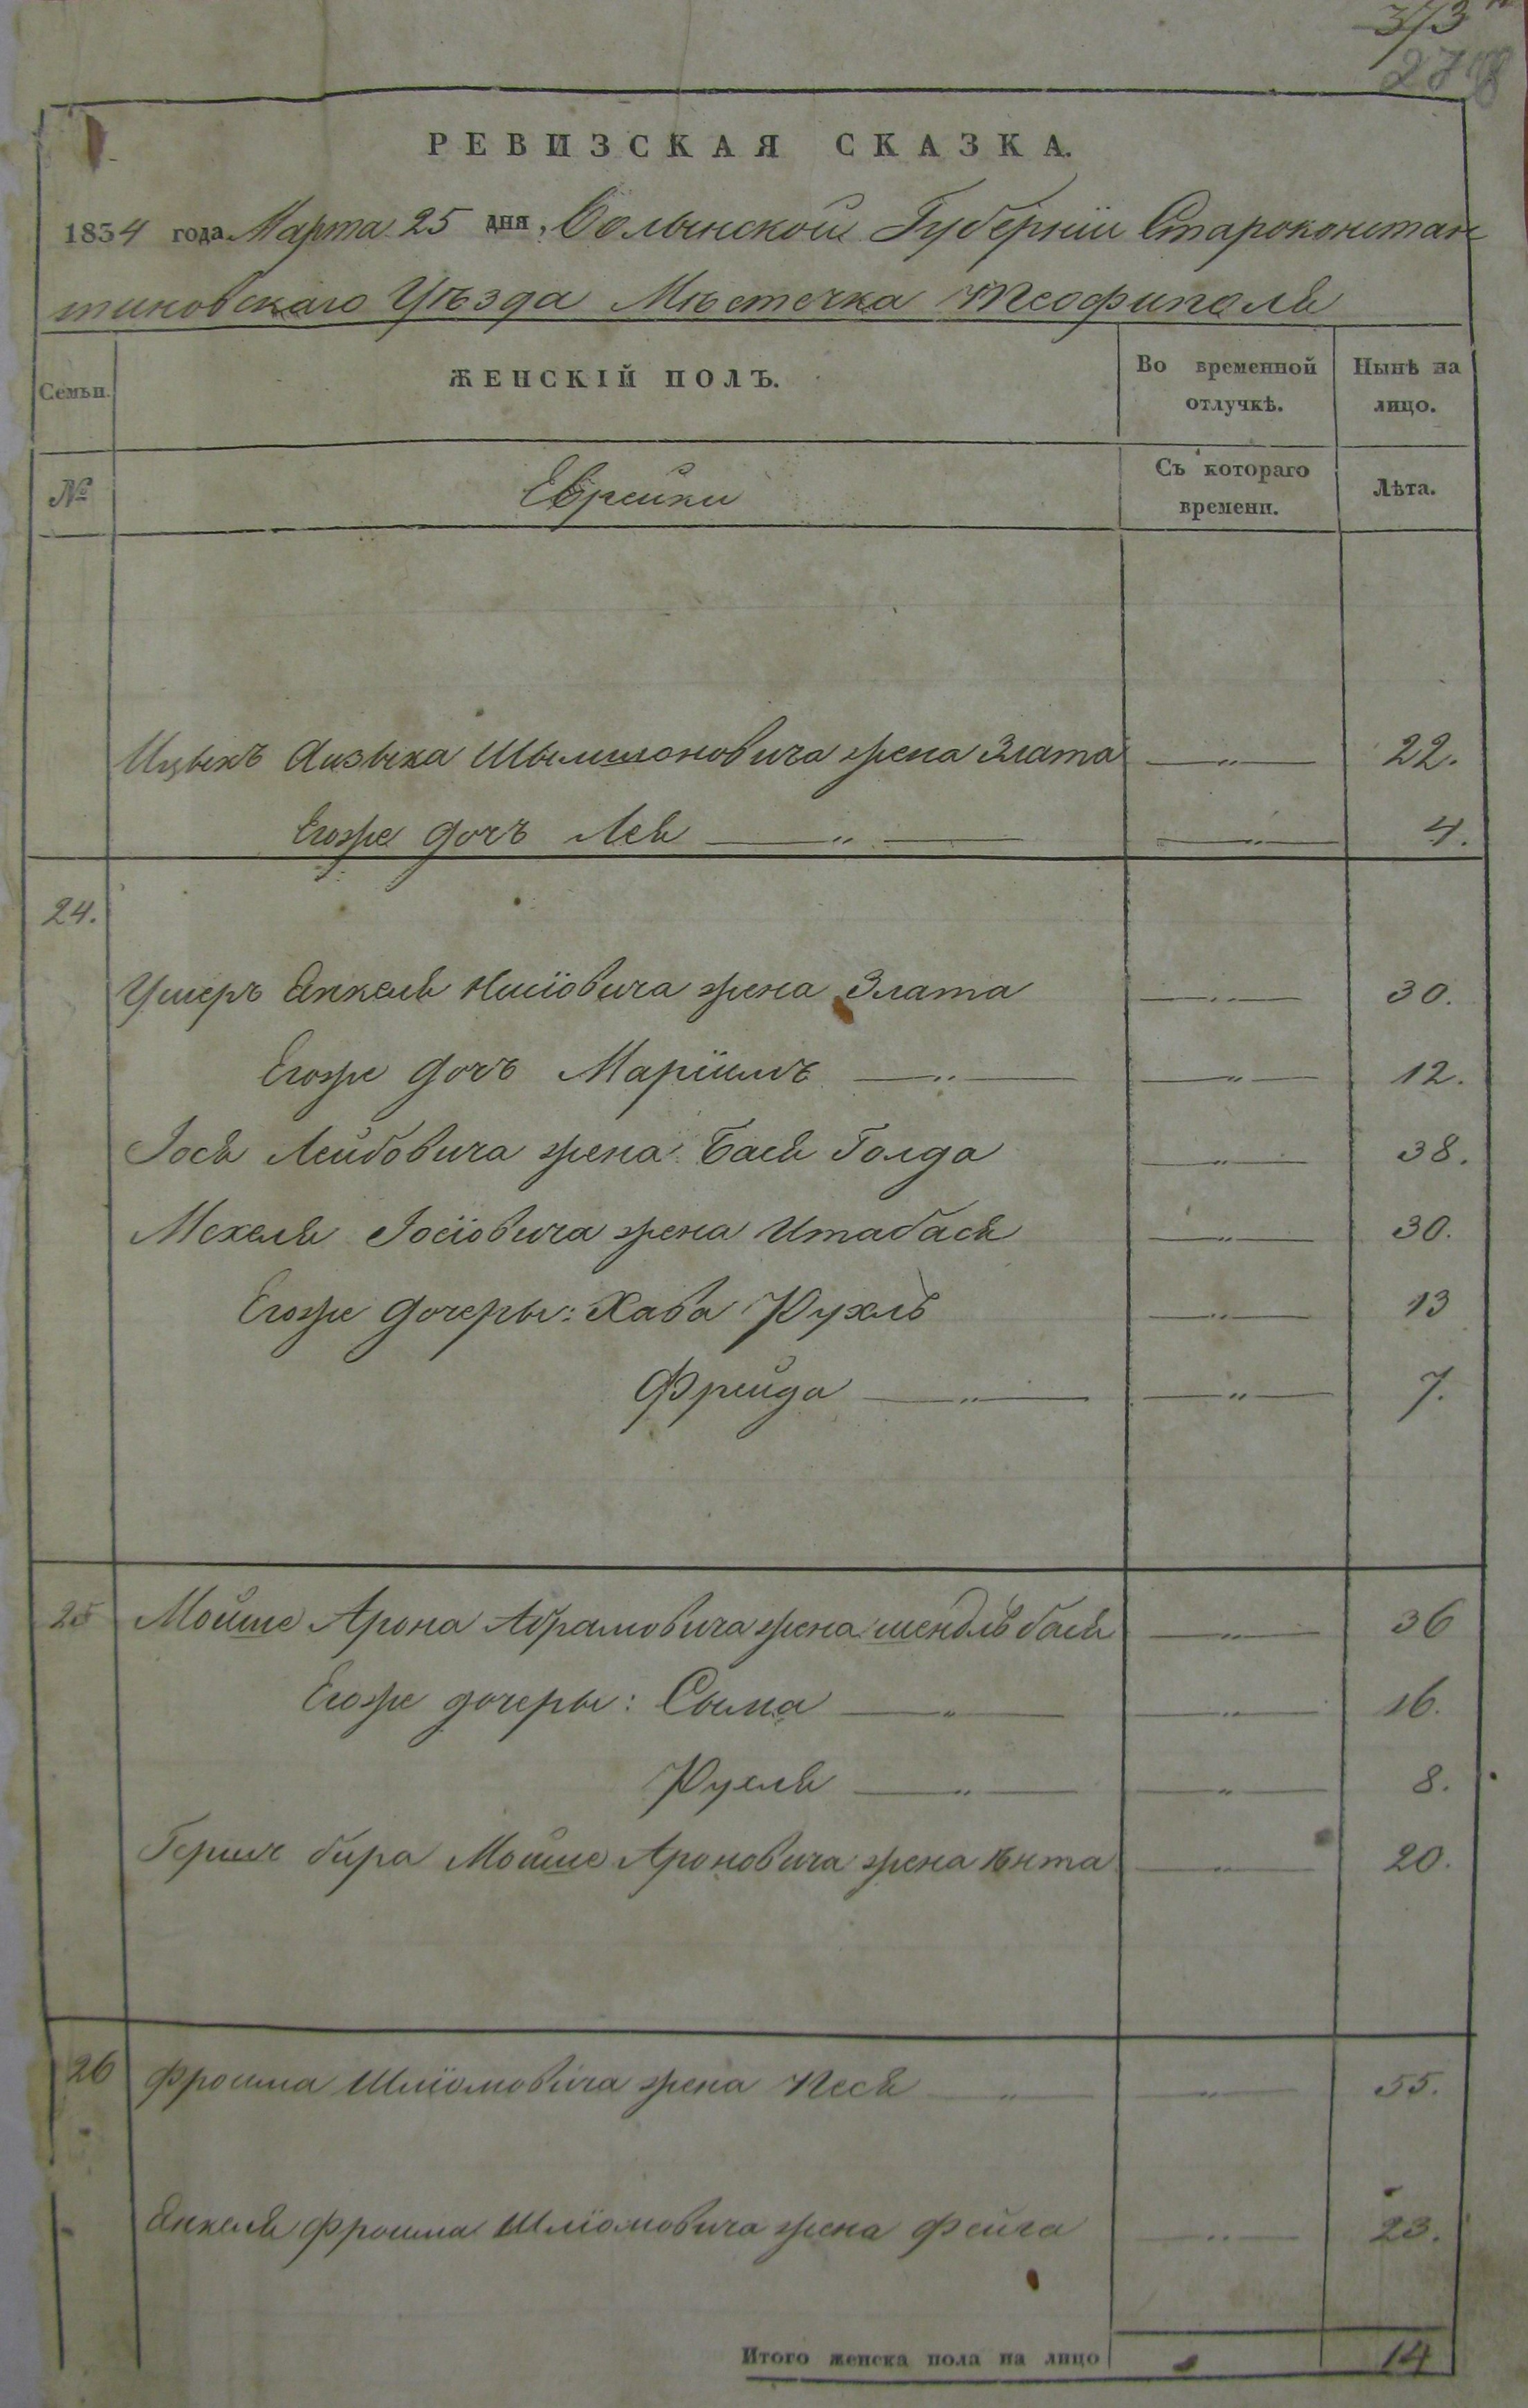 373
278
РЕВИЗСКАЯ СКАЗКА.
1834 года Марта 25 дня, Волынской Губерніи Староконстан
тиновскаго Уѣзда Мѣстечка Теофиполя
Семьи. ЖЕНСКІЙ ПОЛЪ. Во временной отлучкѣ. Нынѣ на лицо.
№ Еврейки Съ котораго времени. Лѣта.
Ицыкъ Аизыка Шымшоновича жена Злата —„— 22.
Егоже дочъ Лея —„— —„— 4.
24.
Ушеръ Янкеля Іосіовича жена Злата —„— 30.
Егоже дочъ Маріимъ —„— —„— 12.
Іося Лейбовича жена Бася Голда —„— 38.
Мехеля Іосіовича жена Итабася —„— 30.
Егоже дочеры: Хава Рухль —„— 13
Фрейда —„— —„— 7.
25 Мойше Арона Абрамовича жена шендль бася —„— 36
Егоже дочеры: Сыма —„— —„— 16.
Рухля —„— —„— 8.
Гершъ бира Мойше Ароновича жена Ента —„— 20.
26 Фроима Шліомовича жена Песя —„— —„— 55.
Янкеля Фроима Шліомовича жена Фейга —„— 23.
Итого женска пола на лицо 14